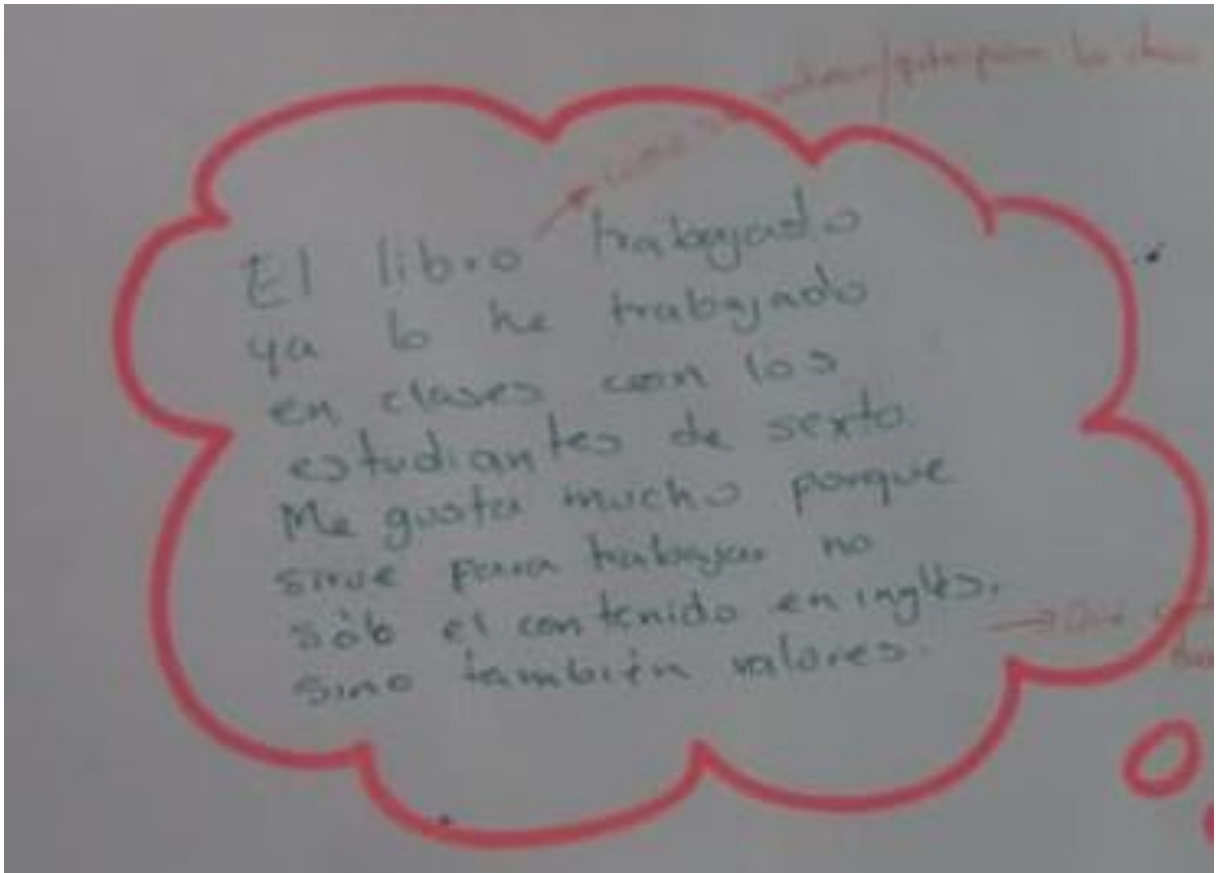 El libro trabajado
ya lo he trabajado
en clases con los
estudiantes de sexto.
Me gusta mucho porque
sirve para trabajar no
sólo el contenido en inglés,
sino también valores.